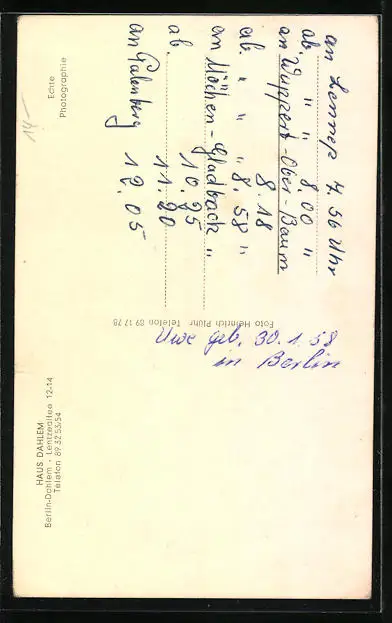 an Lennep 7.56 Uhr
ab. " " 8.00 "
an Wuppert-Ober-Barm
8.18
ab. " " " 8.58 "
an Möchen-Gladbach "
10.25
ab. 11.20
an Palenberg 12.05
Uwe geb. 30.1.58
in Berlin
Echte
Photographie
14-
Foto Heinrich Pluhr Telefon 89 17 78
HAUS DAHLEM
Berlin-Dahlem - Lentzeallee 12-14
Telefon 89 32 53/54